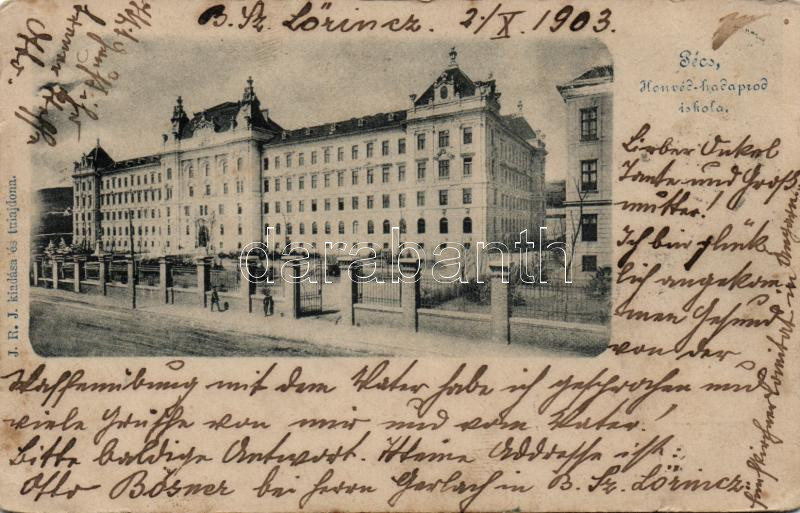 B. Sz. Lőrincz. 2./X. 1903.
Pécs,
Honvéd-hadapród
iskola.
J. R. J. kiadása és tulajdona.
darabanth
Lieber Onkel
Tante und Groß
mutter!
Ich bin glück
lich angekom
men Gesund
von der
Waffenübung mit dem Vater habe ich gesprochen und
viele Grüsse von mir und vom Vater!
Bitte baldige Antwort. Meine Addresse ist:
Otto Bösner bei Herrn Gerlach in B. Sz. Lőrincz
Fünfkirchner Comitat in